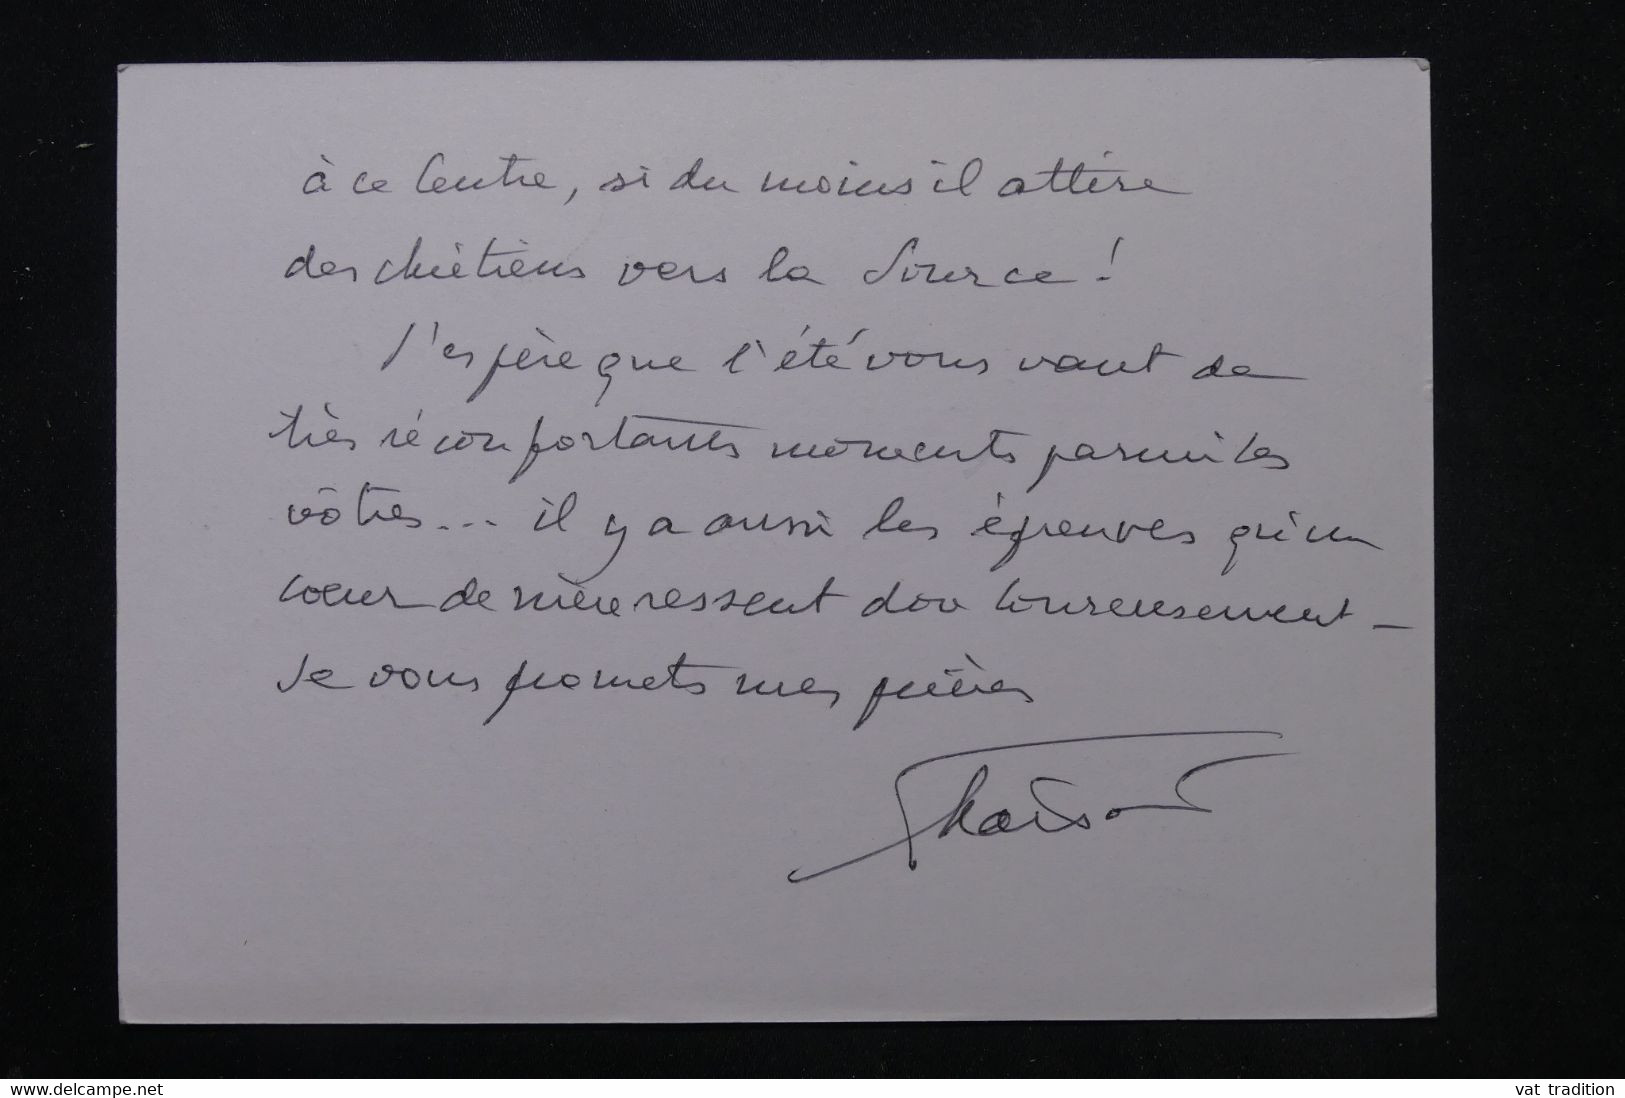 à ce Centre, si du moins il attire
des chrétiens vers la Source !
J'espère que l'été vous vaut de
très réconfortants moments parmi les
vôtres... il y a aussi les épreuves qu'un
cœur de mère ressent douloureusement –
Je vous promets mes prières
www.delcampe.net
vat tradition